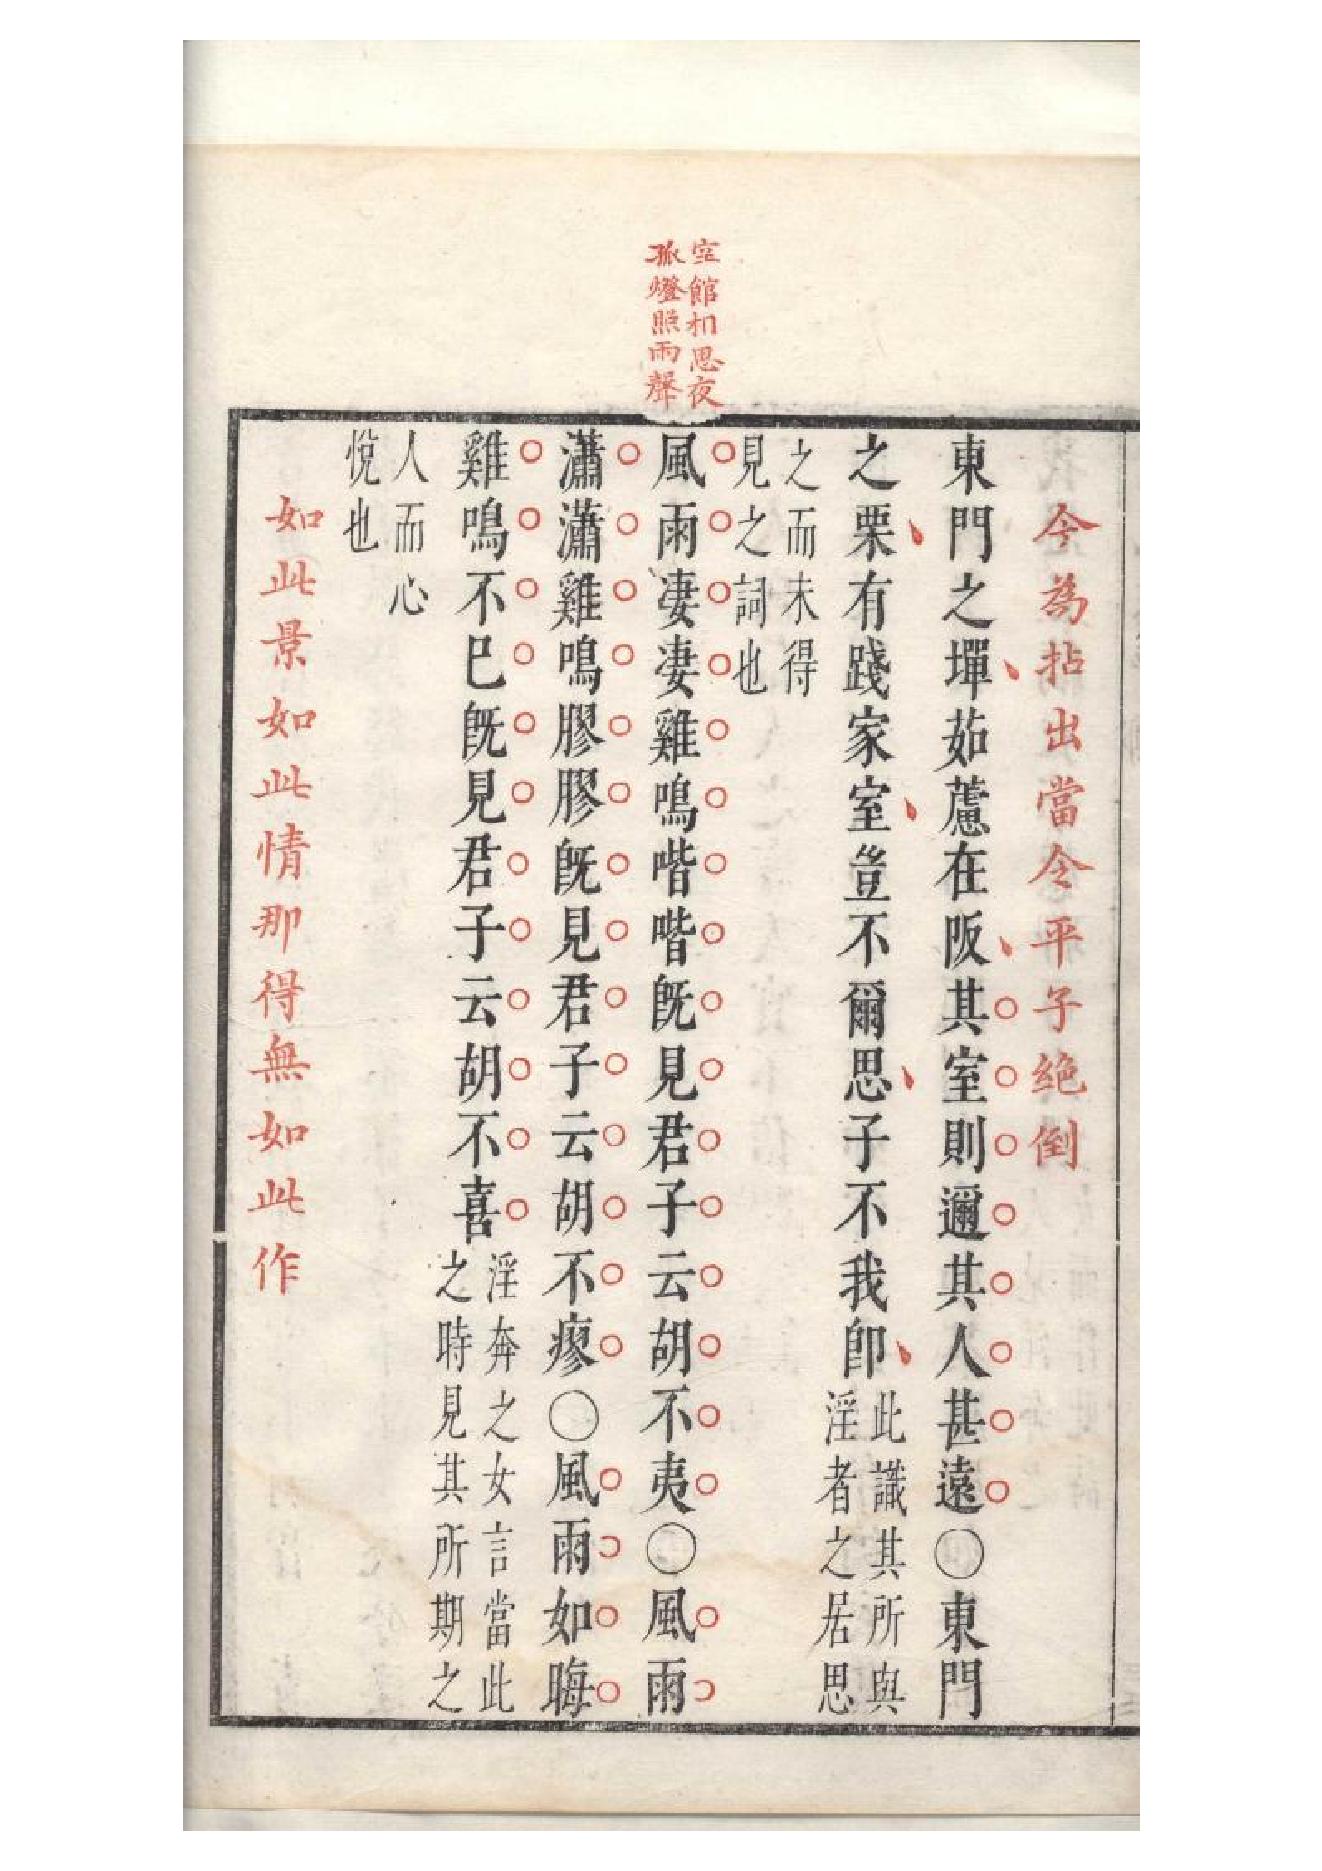 空館相思夜
孤燈照雨聲
今為拈出當令平子絶倒
東門之墠茹藘在阪其室則邇其人甚遠○東門
之栗有踐家室豈不爾思子不我卽此識其所與
淫者之居思
之而未得
見之詞也
風雨凄凄雞鳴喈喈旣見君子云胡不夷○風雨
瀟瀟雞鳴膠膠旣見君子云胡不瘳○風雨如晦
雞鳴不已旣見君子云胡不喜淫奔之女言當此
之時見其所期之
人而心
悅也
如此景如此情那得無如此作